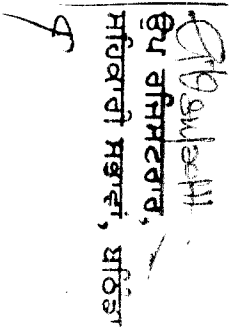 ਉਪ ਰਜਿਸਟਰਾਰ,
ਸਹਿਕਾਰੀ ਸਭਾਵਾਂ, ਬਠਿੰਡਾ